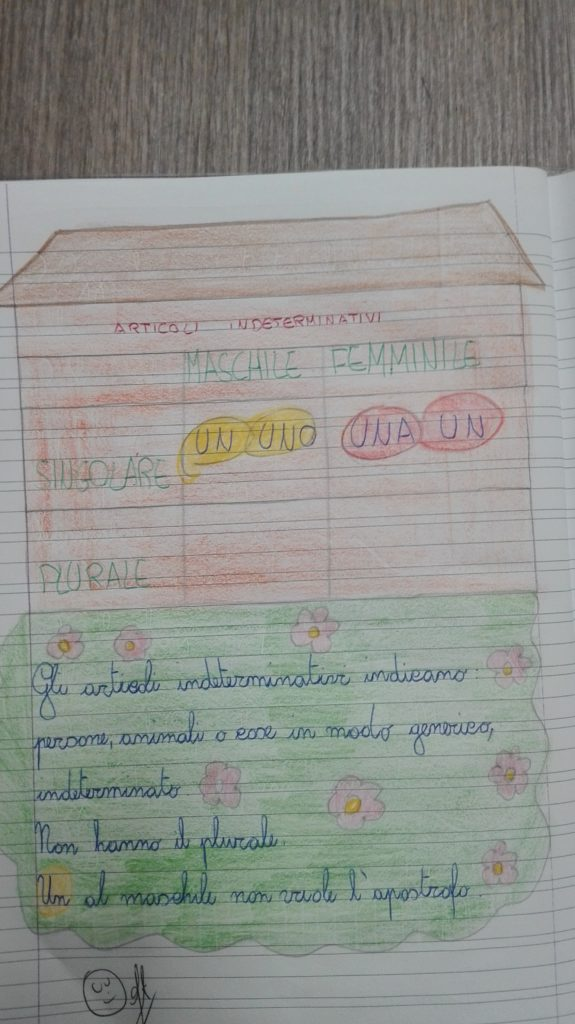 ARTICOLI INDETERMINATIVI
MASCHILE FEMMINILE
SINGOLARE UN UNO UNA UN
PLURALE
Gli articoli indeterminativi indicano:
persone, animali o cose in modo generico,
indeterminato
Non hanno il plurale.
Un al maschile non vuole l'apostrofo.